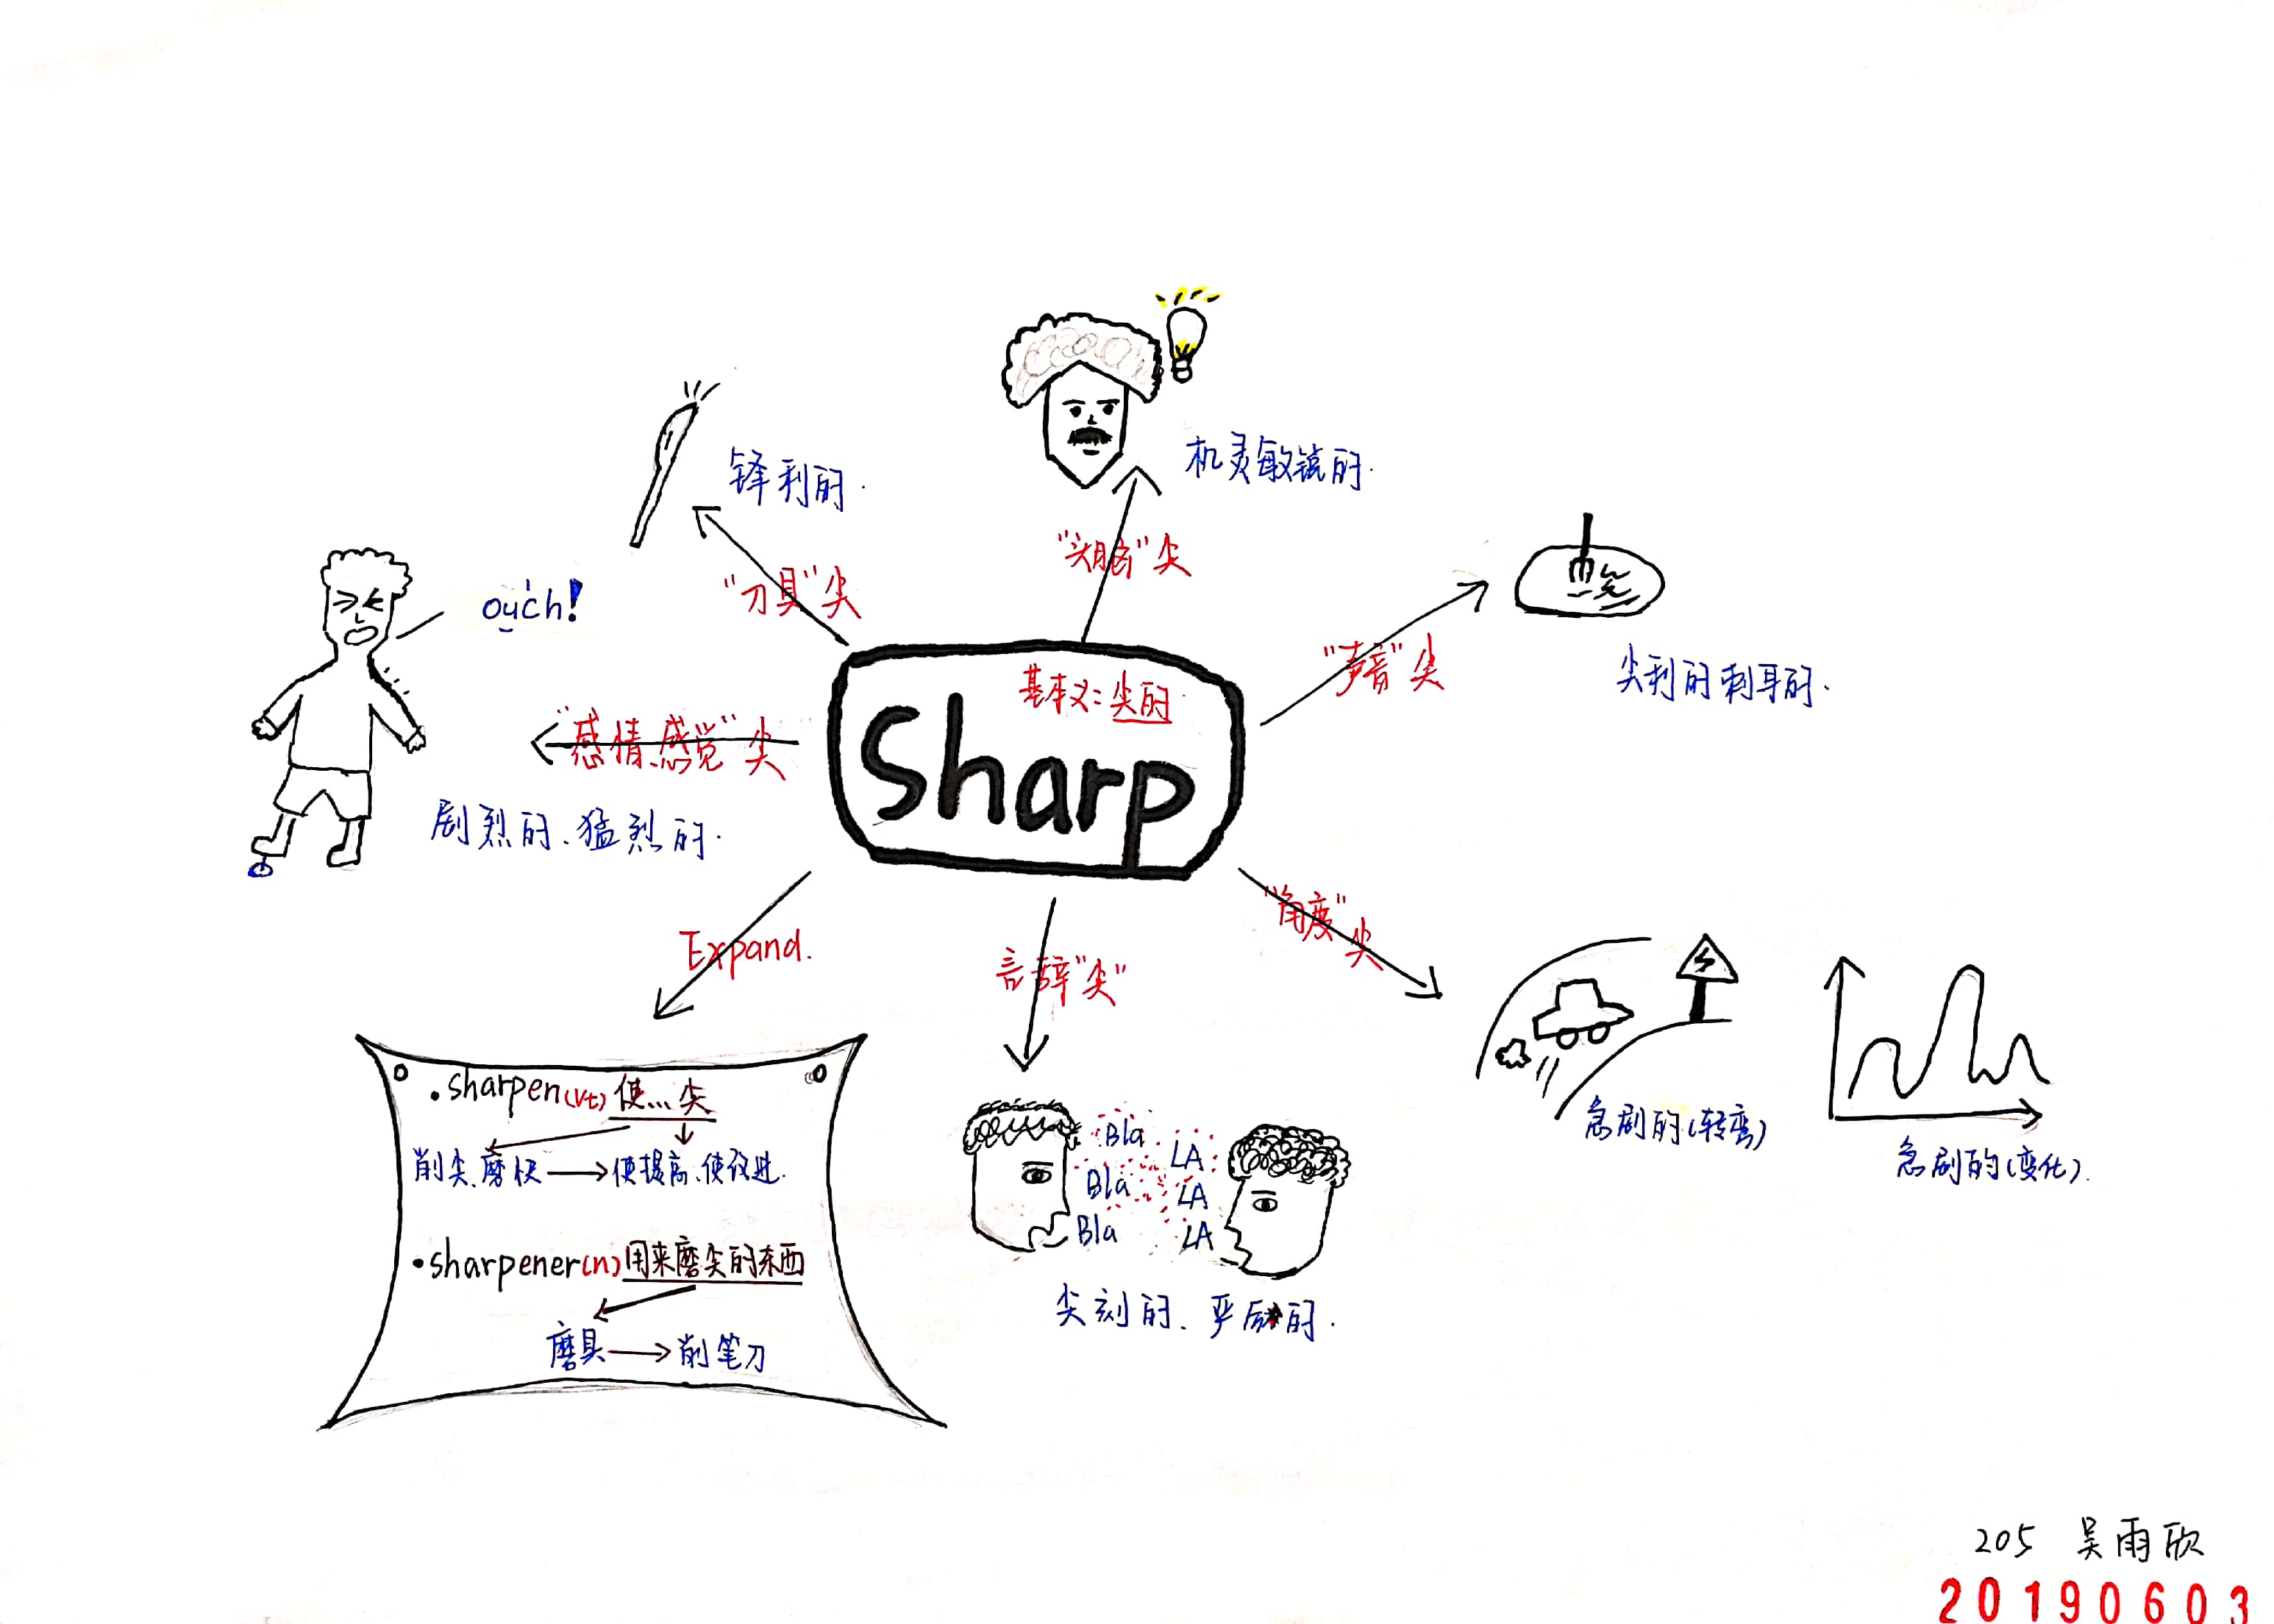 机灵敏锐的.
锋利的.
"头脑"尖
"刀具"尖
ouch!
"声音"尖
尖利的刺耳的.
基本义:尖的
Sharp
"感情、感觉"尖
剧烈的、猛烈的.
"角度"尖
Expand.
言辞"尖"
.sharpen(vt)使...尖
削尖、磨快→使提高、使改进.
•sharpener(n)用来磨尖的东西
磨具→削笔刀
Bla LA
Bla LA
Bla LA
尖刻的、严厉的.
急剧的(转弯)
急剧的(变化).
205 吴雨欣
20190603